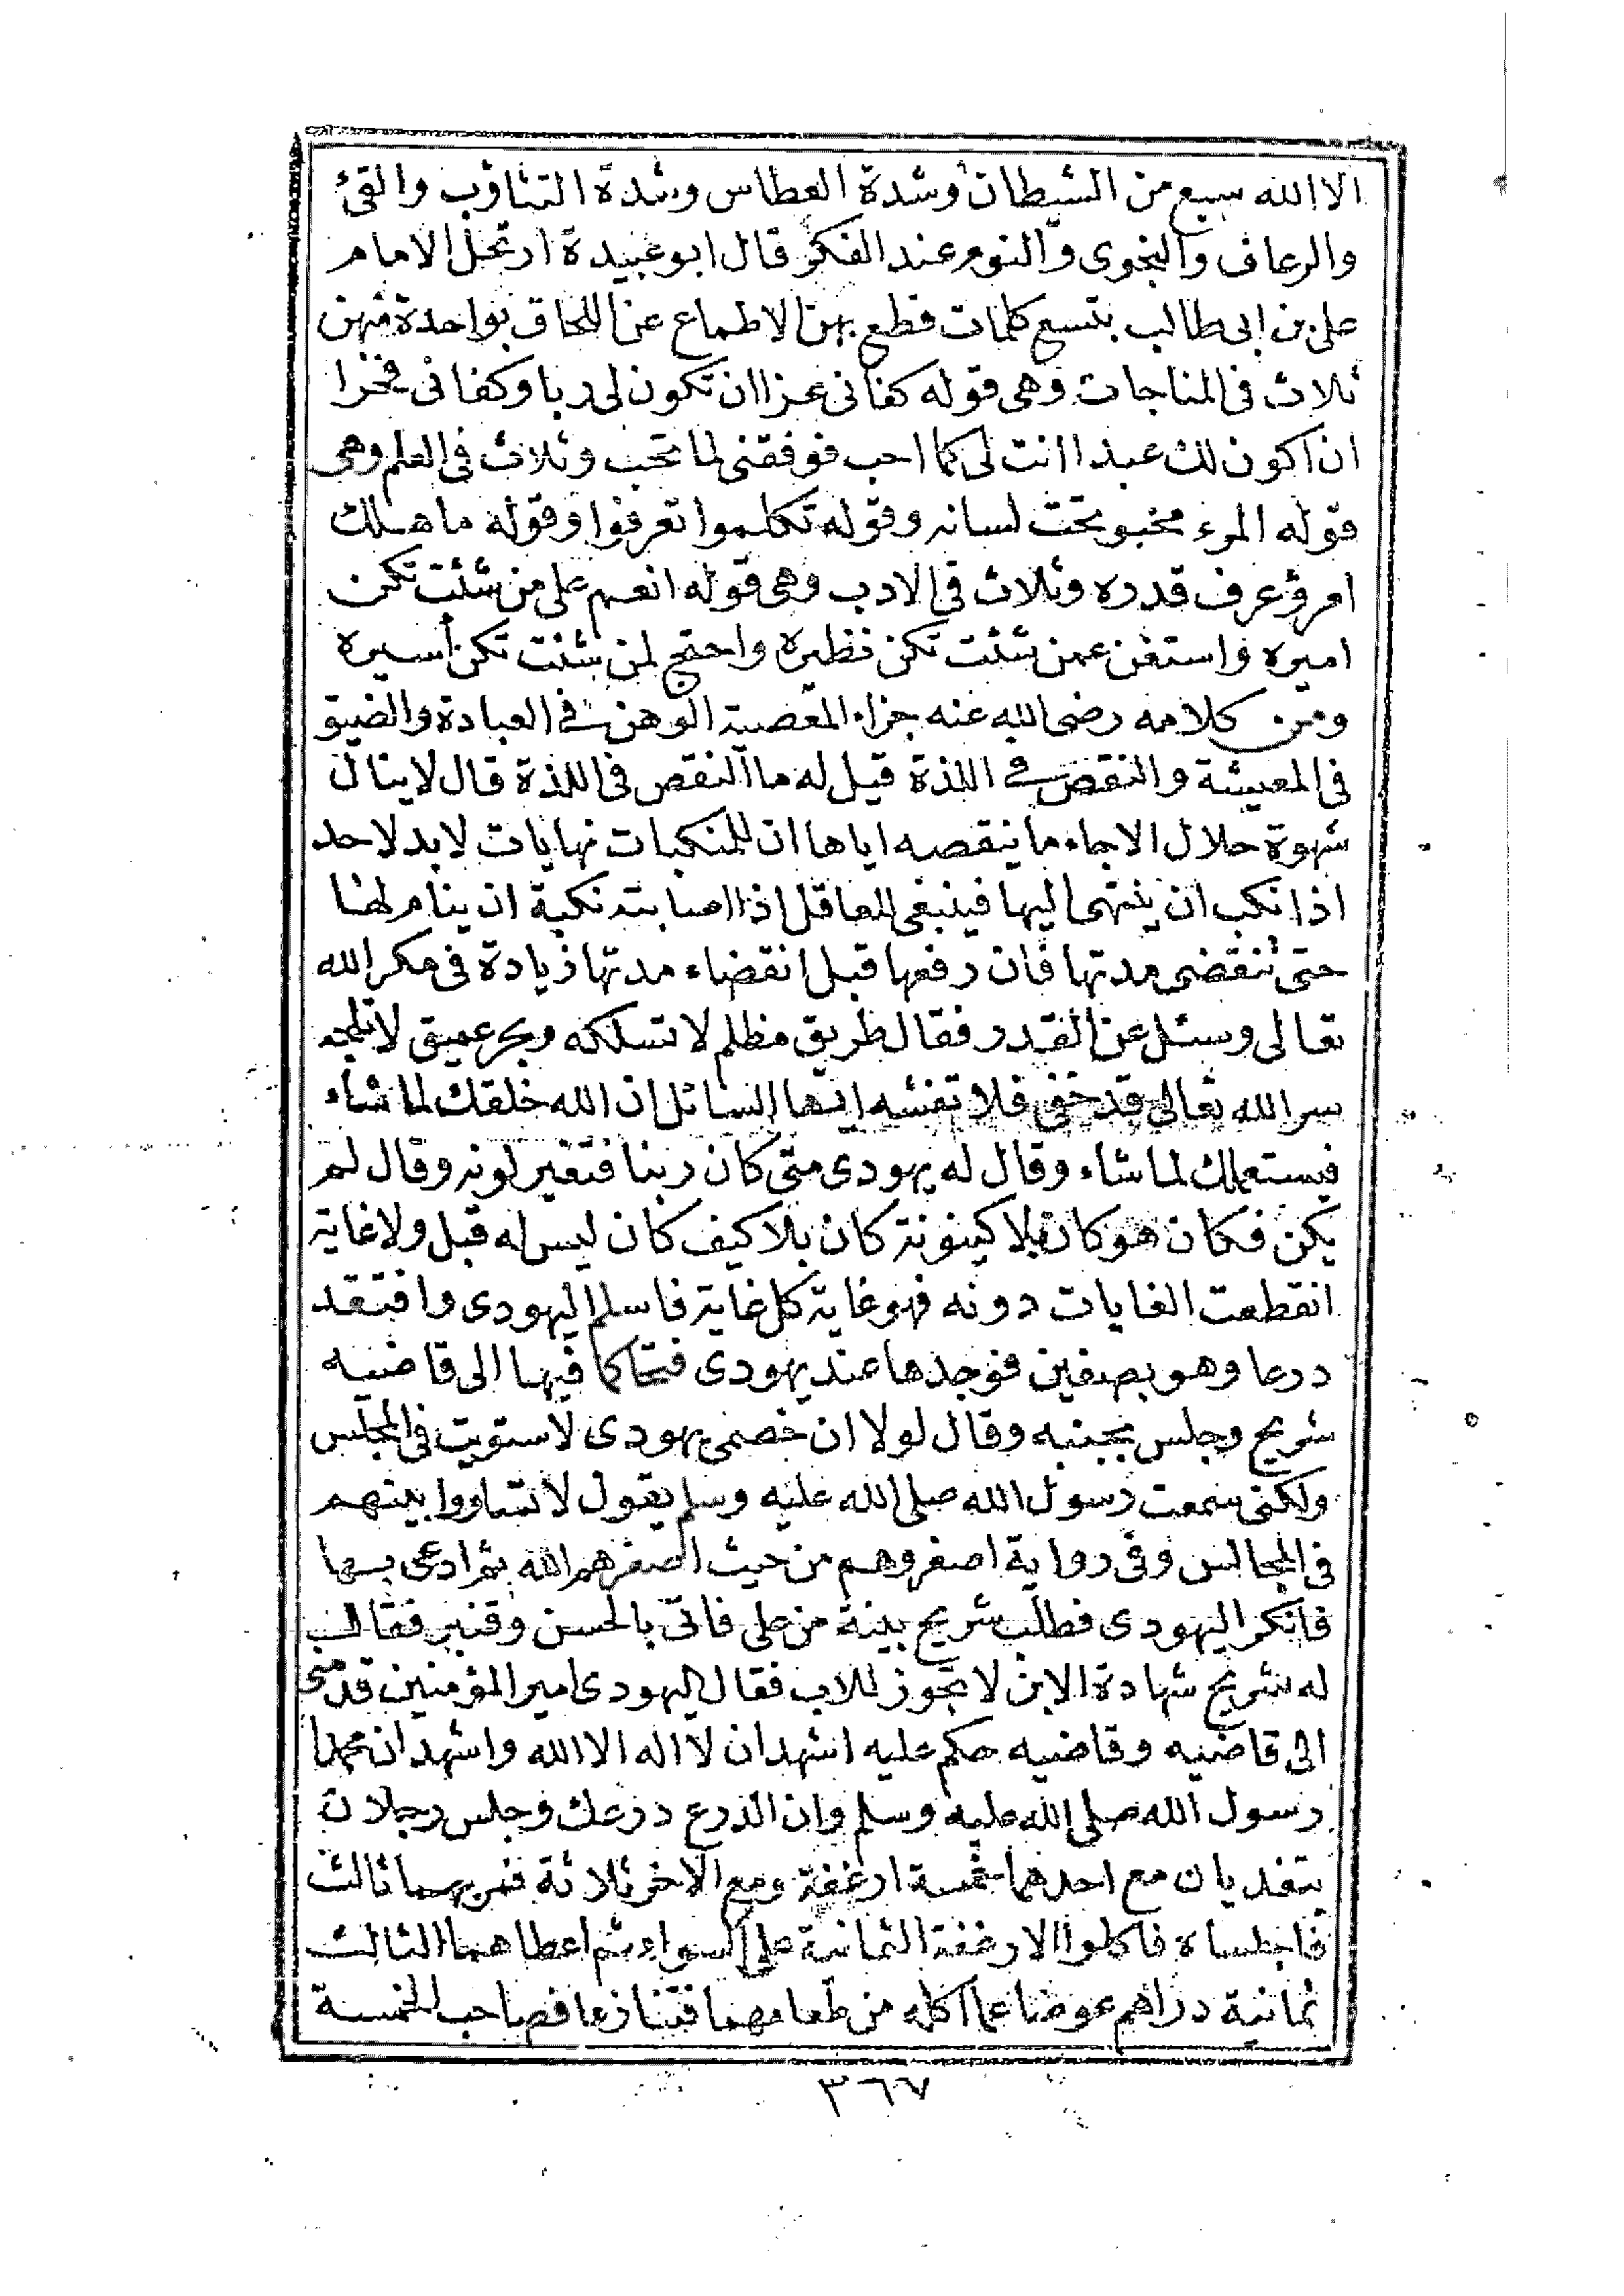 الا الله سبع من الشيطان وشدة العطاس وشدة التثاؤب والقئ
والرعاف والنجوى والنوم عند الفكر قال ابو عبيدة ارتحل الامام
على بن ابى طالب بتسع كلمات قطع بهن الاطماع عن اللحاق بواحدة منهن
ثلاث فى المناجات وهى قوله كفانى عزا ان تكون لى ربا وكفانى فخرا
ان اكون لك عبدا انت لى كما احب فوفقنى لما تحب وثلاث فى العلم وهى
قوله المرء مخبو تحت لسانه وقوله تكلموا تعرفوا وقوله ما هلك
امرؤ عرف قدره وثلاث فى الادب وهى قوله انعم على من شئت تكن
اميره واستغن عمن شئت تكن نظيره واحتج لمن شئت تكن أسيره
ومن كلامه رضى الله عنه جزاء المعصية الوهن فى العبادة والضيق
فى المعيشة والنقص فى اللذة قيل له ما النقص فى اللذة قال لا ينال
شهوة حلال الا جاءه ما ينقصه اياها ان للنكبات نهايات لا بد لاحد
اذا نكب ان ينتهى اليها فينبغى للعاقل اذا اصابته نكبة ان ينام لها
حتى تنقضى مدتها فان رفعها قبل انقضاء مدتها زيادة فى مكر الله
تعالى وسئل عن القدر فقال طريق مظلم لا تسلكه وبحر عميق لا تلجه
سر الله تعالى قد خفى فلا تفشه ايها السائل ان الله خلقك لما شاء
فيستعملك لما شاء وقال له يهودى متى كان ربنا فتغير لونه وقال لم
يكن فكان هو كان بلا كينونة كان بلا كيف كان ليس له قبل ولا غاية
انقطعت الغايات دونه فهو غاية كل غاية فاسلم اليهودى وافتقد
درعا وهو بصفين فوجدها عند يهودى فتحاكما فيها الى قاضيه
شريح وجلس بجنبه وقال لولا ان خصمى يهودى لاستويت فى المجلس
ولكنى سمعت رسول الله صلى الله عليه وسلم يقول لا تساووا بينهم
فى المجالس وفى رواية اصغروهم من حيث اصغرهم الله ثم ادعى بها
فانكر اليهودى فطلب شريح بينة من على فاتى بالحسن وقنبر فقال
له شريح شهادة الابن لا تجوز للاب فقال اليهودى امير المؤمنين قدمنى
الى قاضيه وقاضيه حكم عليه اشهد ان لا اله الا الله واشهد ان محمدا
رسول الله صلى الله عليه وسلم وان الدرع درعك وجلس رجلان
يتغديان مع احدهما خمسة ارغفة ومع الاخر ثلاثة فمر بهما ثالث
فاجلساه فاكلوا الارغفة الثمانية على السواء ثم اعطاهما الثالث
ثمانية دراهم عوضا عما اكله من طعامهما فتنازعا فصاحب الخمسة
٣٦٧